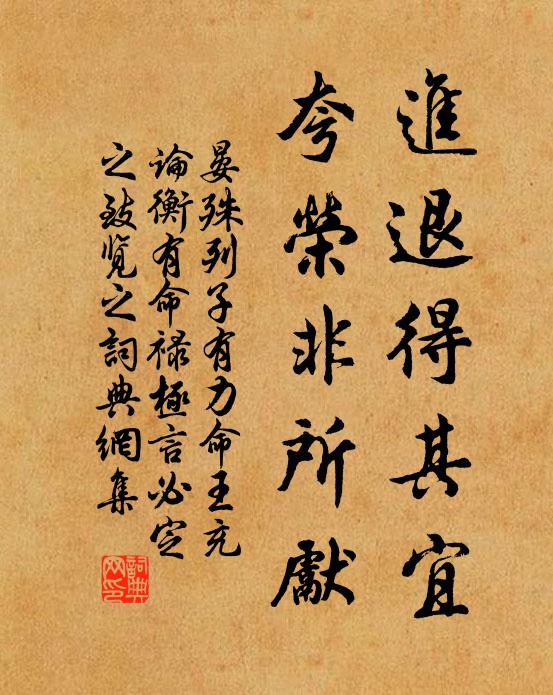 進退得其宜
夸榮非所獻
晏殊列子有力命王充
論衡有命祿極言必定
之致覽之詞典網集
詞典
网印